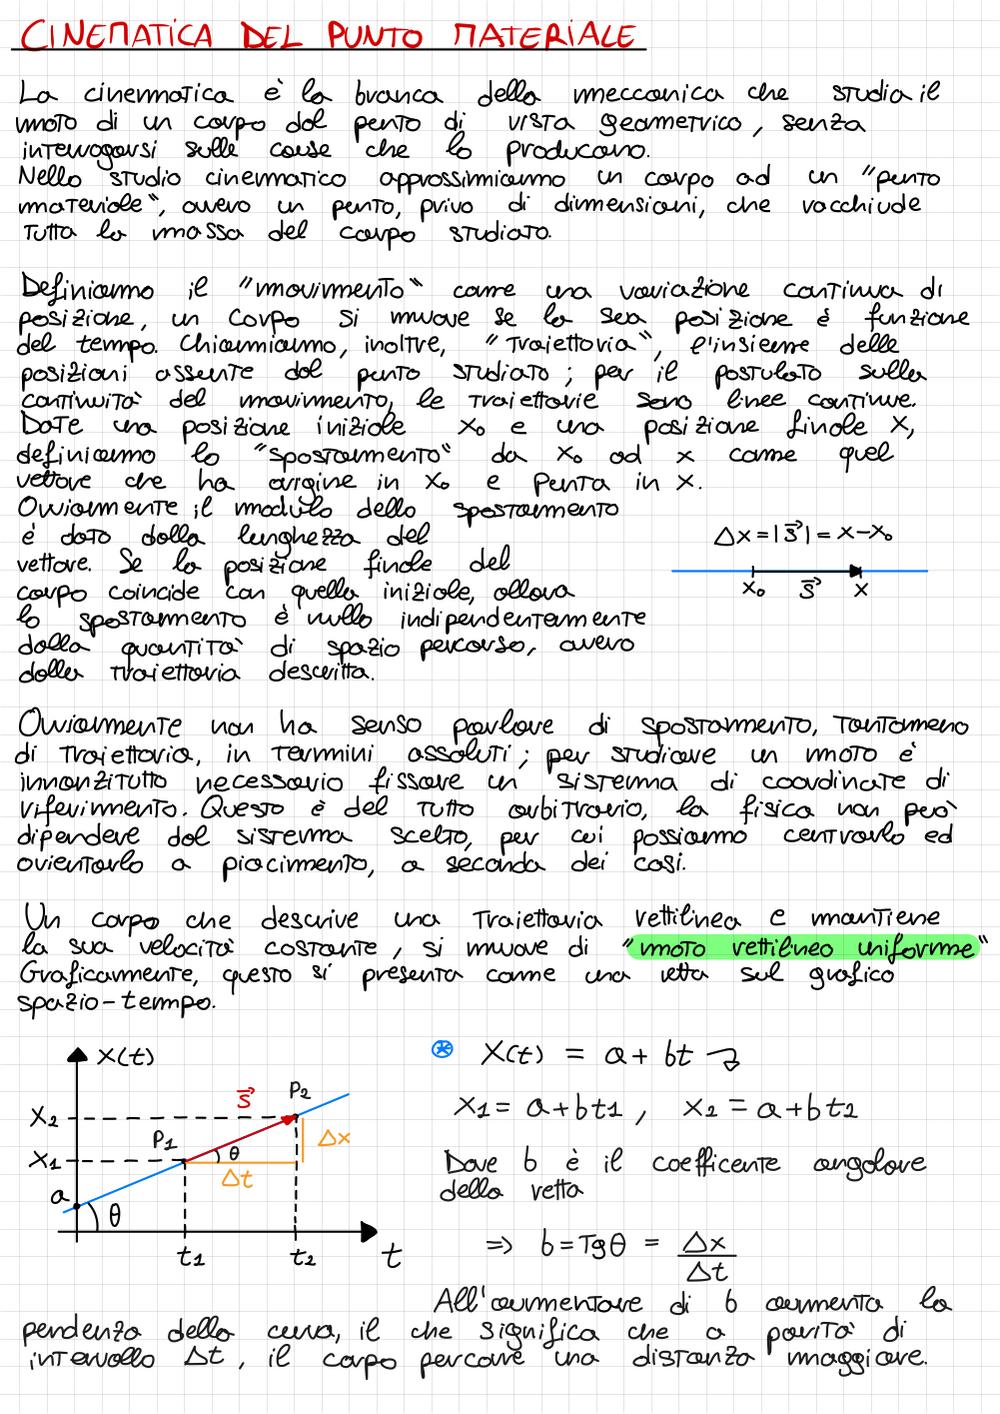 CINEMATICA DEL PUNTO MATERIALE
La cinematica è la branca della meccanica che studia il
moto di un corpo dal punto di vista geometrico, senza
interrogarsi sulle cause che lo producano.
Nello studio cinematico approssimiamo un corpo ad un "punto
materiale", ovvero un punto, privo di dimensioni, che racchiude
tutta la massa del corpo studiato.
Definiamo il "movimento" come una variazione continua di
posizione, un corpo si muove se la sua posizione è funzione
del tempo. Chiamiamo, inoltre, "traiettoria", l'insieme delle
posizioni assunte dal punto studiato; per il postulato sulla
continuità del movimento, le traiettorie sono linee continue.
Date una posizione iniziale x₀ e una posizione finale x,
definiamo lo "spostamento" da x₀ ad x come quel
vettore che ha origine in x₀ e punta in x.
Ovviamente il modulo dello spostamento
è dato dalla lunghezza del
vettore. Se la posizione finale del
corpo coincide con quella iniziale, allora
lo spostamento è nullo indipendentemente
dalla quantità di spazio percorso, ovvero
dalla traiettoria descritta.
Δx=|s⃗|= x-x₀
x₀ s⃗ x
Ovviamente non ha senso parlare di spostamento, tantomeno
di traiettoria, in termini assoluti; per studiare un moto è
innanzitutto necessario fissare un sistema di coordinate di
riferimento. Questo è del tutto arbitrario, la fisica non può
dipendere dal sistema scelto, per cui possiamo centrarlo ed
orientarlo a piacimento, a seconda dei casi.
Un corpo che descrive una traiettoria rettilinea e mantiene
la sua velocità costante, si muove di "moto rettilineo uniforme"
Graficamente, questo si presenta come una retta sul grafico
spazio-tempo.
x(t)
x₂
x₁
a
P₁
P₂
s⃗
θ
Δx
Δt
θ
t₁ t₂ t
⊛ x(t) = a + bt
x₁ = a+bt₁, x₂ = a+bt₂
Dove b è il coefficente angolare
della retta
⇒ b = Tgθ = Δx/Δt
All'aumentare di b aumenta la
pendenza della curva, il che significa che a parità di
intervallo Δt, il corpo percorre una distanza maggiore.